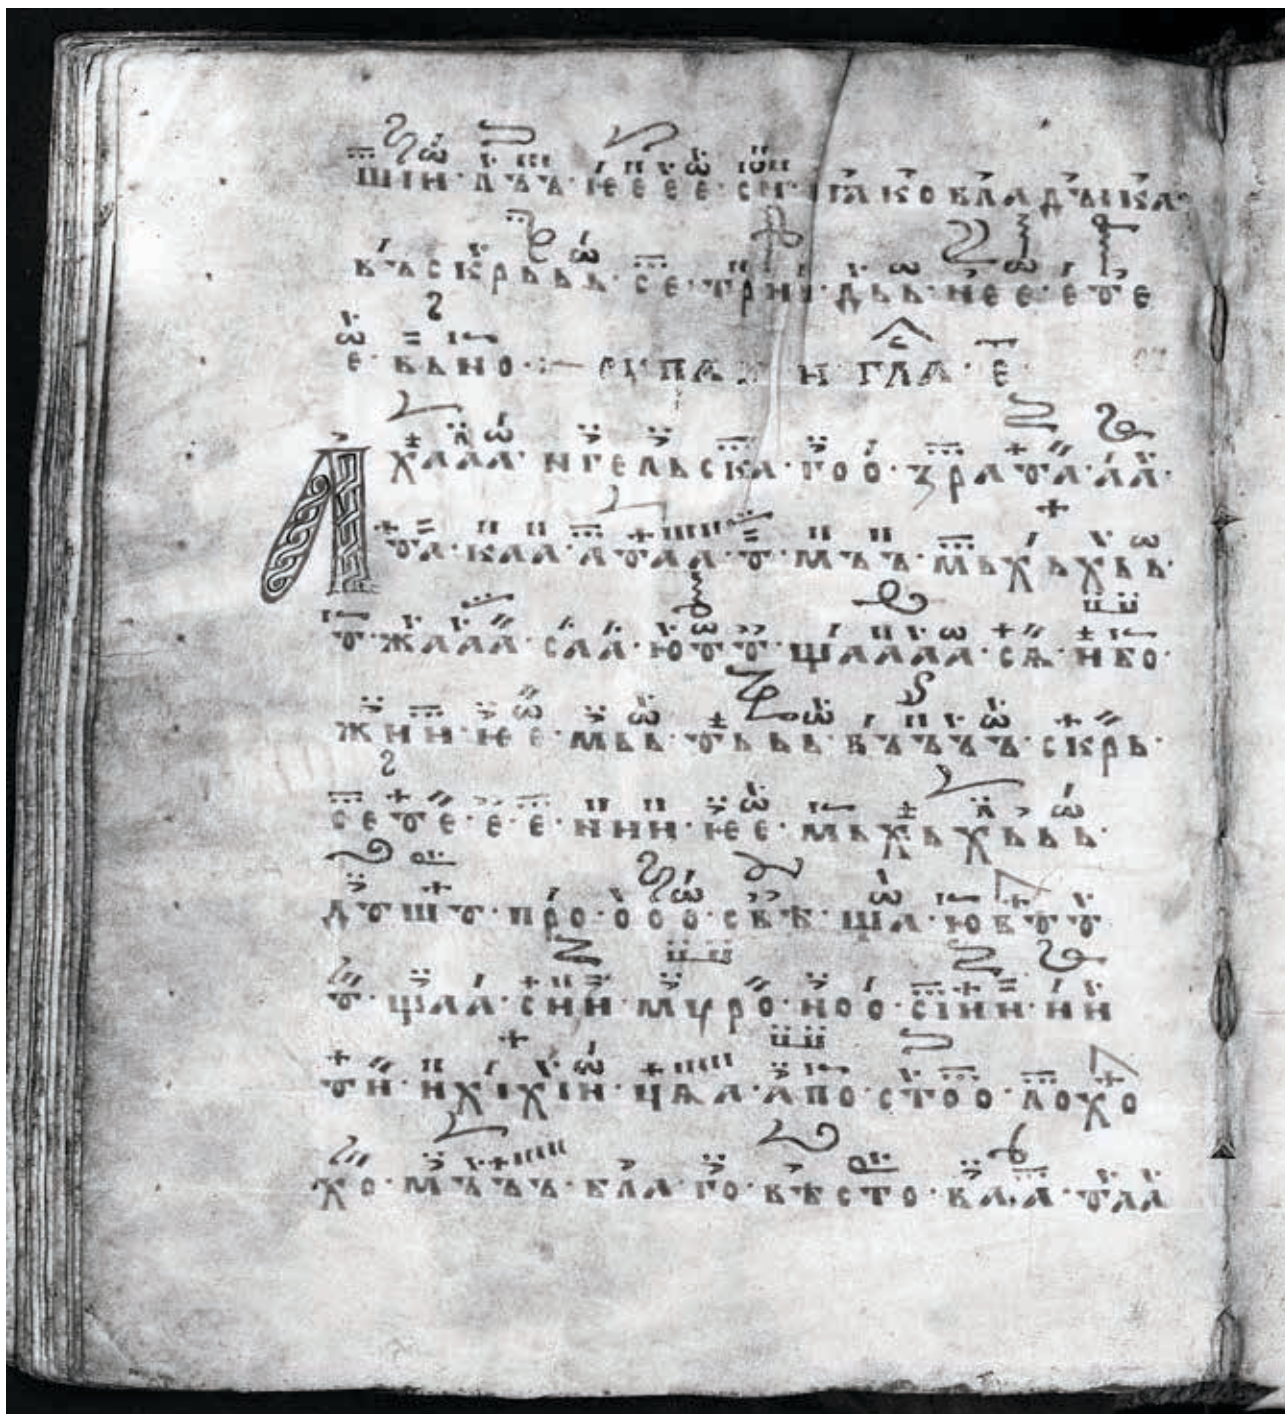 шін · лъъ · ѥеее · си · іако владъіка ·
въскрьвь · се · три · дьь · нее · еꙋе
е · вьно :— ѹпа и гла · е ·
Ахааа · нгельска · гоо · зрачꙋа · аа ·
ꙋа · каа · аꙋаа · ꙋ · мъъ · мьхьхьь ·
ꙋ · жааа · саа · юꙋꙋ · щаааа · сѧ · н бо ·
жиии · ѥе · мьь · ꙋььь · въъъъ · скрь ·
сеꙋе · е · е · нии · ѥе · мьхьхььь ·
дꙋшꙋ · про · ооо · свѣ · ща · ювꙋꙋ
ꙋ · щаа · сии · мѵро · ноо · сіии · ии
ꙋи · ихіхіи · цѧа · апо · стоо · лохо
хо · мъъъ · бла · го · вѣсто · ваа · ꙋаа